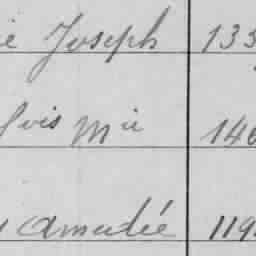 ie Joseph 133
lois Mie 146
Amédée 119